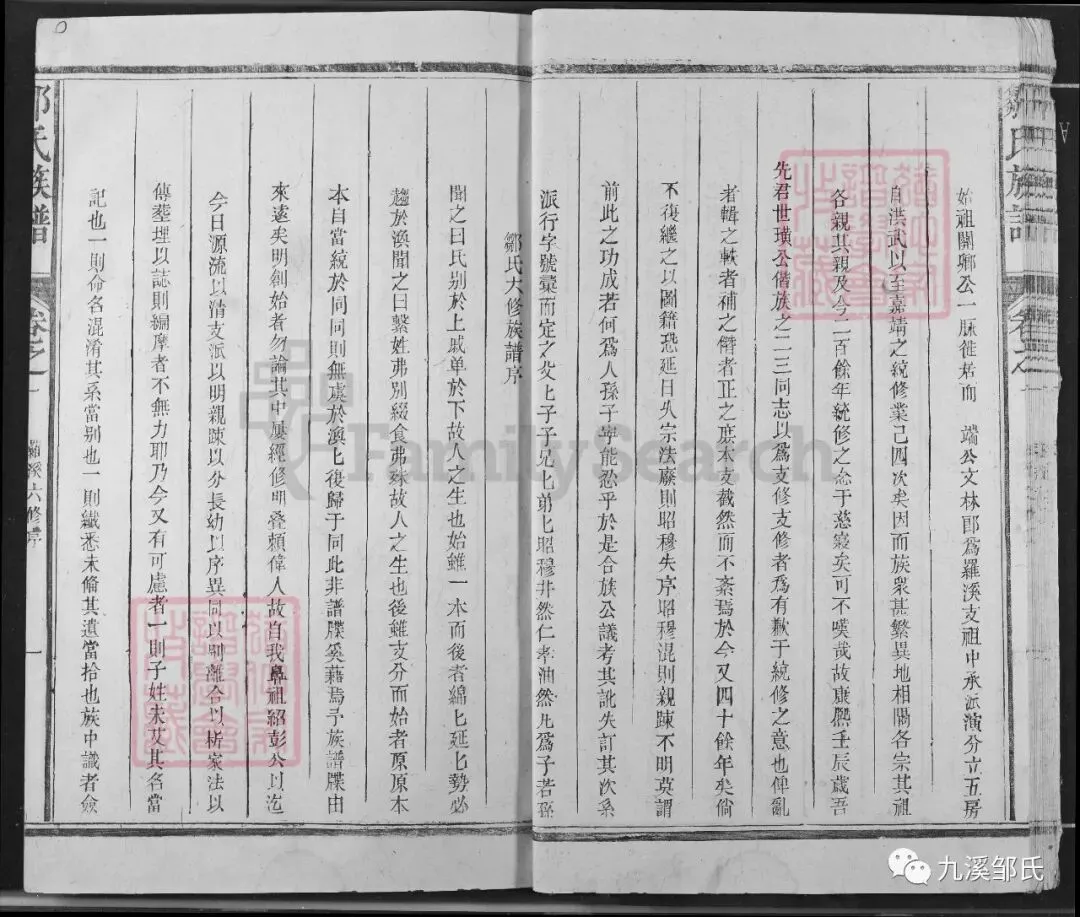 鄒氏族譜
卷之一
始祖開鄉公一脉徙居而 端公文林郎爲羅溪支祖中承派演分立五房
自洪武以至嘉靖之統修業已四次矣因而族衆甚繁異地相隔各宗其祖
各親其親及今二百餘年統修之念于慈寢矣可不嘆哉故康熈壬辰歲吾
先君世璜公偕族之二三同志以爲支修支修者爲有歉于統修之意也俾亂
者輯之軼者補之僭者正之庶本支截然而不紊焉於今又四十餘年矣倘
不復繼之以圖籍恐延日久宗法廢則昭穆失序昭穆混則親踈不明莫謂
前此之功成若何爲人孫子寕能恝乎於是合族公議考其訛失訂其次系
派行字號彚而定之父上子子兄匕弟匕昭穆井然仁孝油然凡爲子若孫
鄒氏大修族譜序
聞之曰氏别於上戚单於下故人之生也始雖一本而後者綿匕延匕勢必
趨於渙聞之曰繫姓弗别綴食弗殊故人之生也後雖支分而始者原原本
本自當統於同同則無虞於渙匕復歸于同此非譜牒奚藉焉予族譜牒由
來遠矣明創始者勿論其中屢經修明叠頼偉人故自我鼻祖紹彭公以迄
今日源流以清支派以明親踈以分長幼以序異同以别離合以析家法以
傳塟埋以誌則編摩者不無力耶乃今又有可慮者一則子姓未艾其名當
記也一則命名混淆其系當别也一則纎悉未偹其遺當拾也族中識者僉
鄒氏族譜
卷之一
羅溪六修序
一
FamilySearch
九溪邹氏